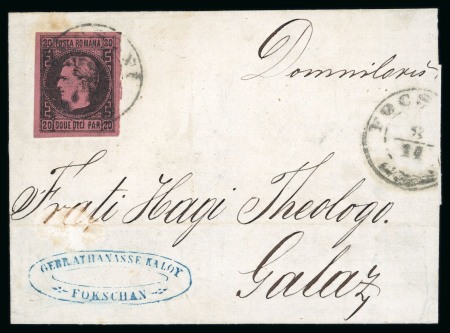 20 POSTA ROMANA 20
20 DOUE DECI PAR 20
FOCS
8
14
Frati Hagi Theologo.
Galaz
GEBR. ATHANASSE KALOY
FOKSCHAN